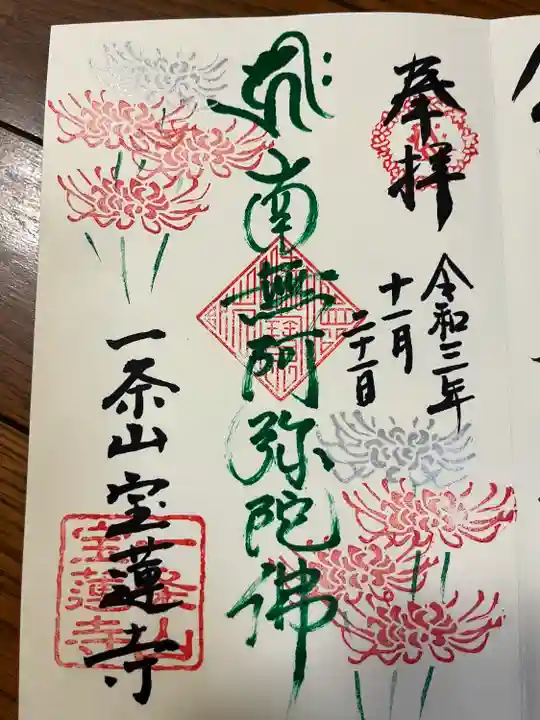 奉拝
令和三年
十一月
二十一日
南無阿弥陀佛
一茶山宝蓮寺